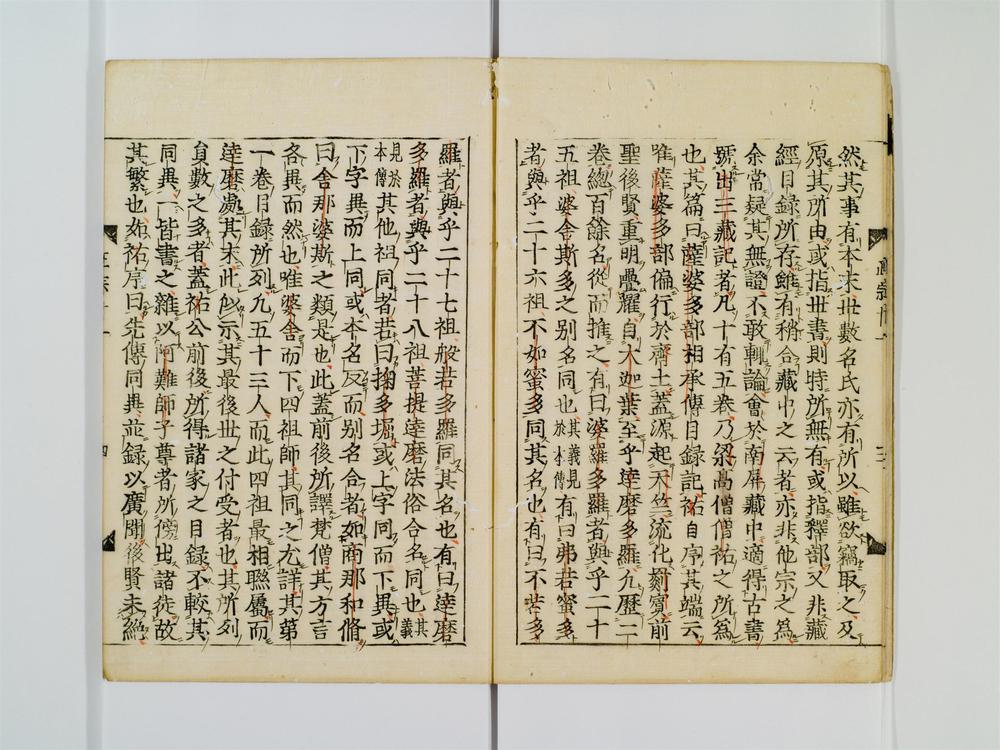 然其事有本末世數名氏亦有所以雖欲竊取之及
原其所由或指世書則時所無有或指釋部又非藏
經目録所存雖有稍合藏中之云者亦非他宗之為
余常疑其無證不敢輒論會於南屏藏中適得古書
號出三藏記者凡十有五卷乃梁高僧僧祐之所為
也其篇曰薩婆多部相承傳目録記祐自序其端云
唯薩婆多部偏行於齊土蓋源起天竺流化罽賓前
聖後賢重明疊耀自大迦葉至乎達磨多羅凡歷二
卷總百餘名從而推之有曰婆羅多羅者與乎二十
五祖婆舍斯多之别名同也其義見於本傳有曰弗若蜜多
者與乎二十六祖不如蜜多同其名也有曰不若多
羅者與乎二十七祖般若多羅同其名也有曰達磨
多羅者與乎二十八祖菩提達磨法俗合名同也其義
見於本傳其他祖同者若曰掬多堀或上字同而下異或
下字異而上同或本名反而别名合者如商那和脩
曰舍那婆斯之類是也此蓋前後所譯梵僧其方言
各異而然也唯婆舍而下四祖師其同之尤詳其第
一卷目録所列凡五十三人而此四祖最相聯屬而
達磨處其末此所示其最後世之付受者也其所列
貟數之多者蓋祐公前後所得諸家之目録不較其
同異一皆書之雜以阿難師子尊者所傍出諸徒故
其繁也如祐序曰先傳同異並録以廣聞後賢未絶